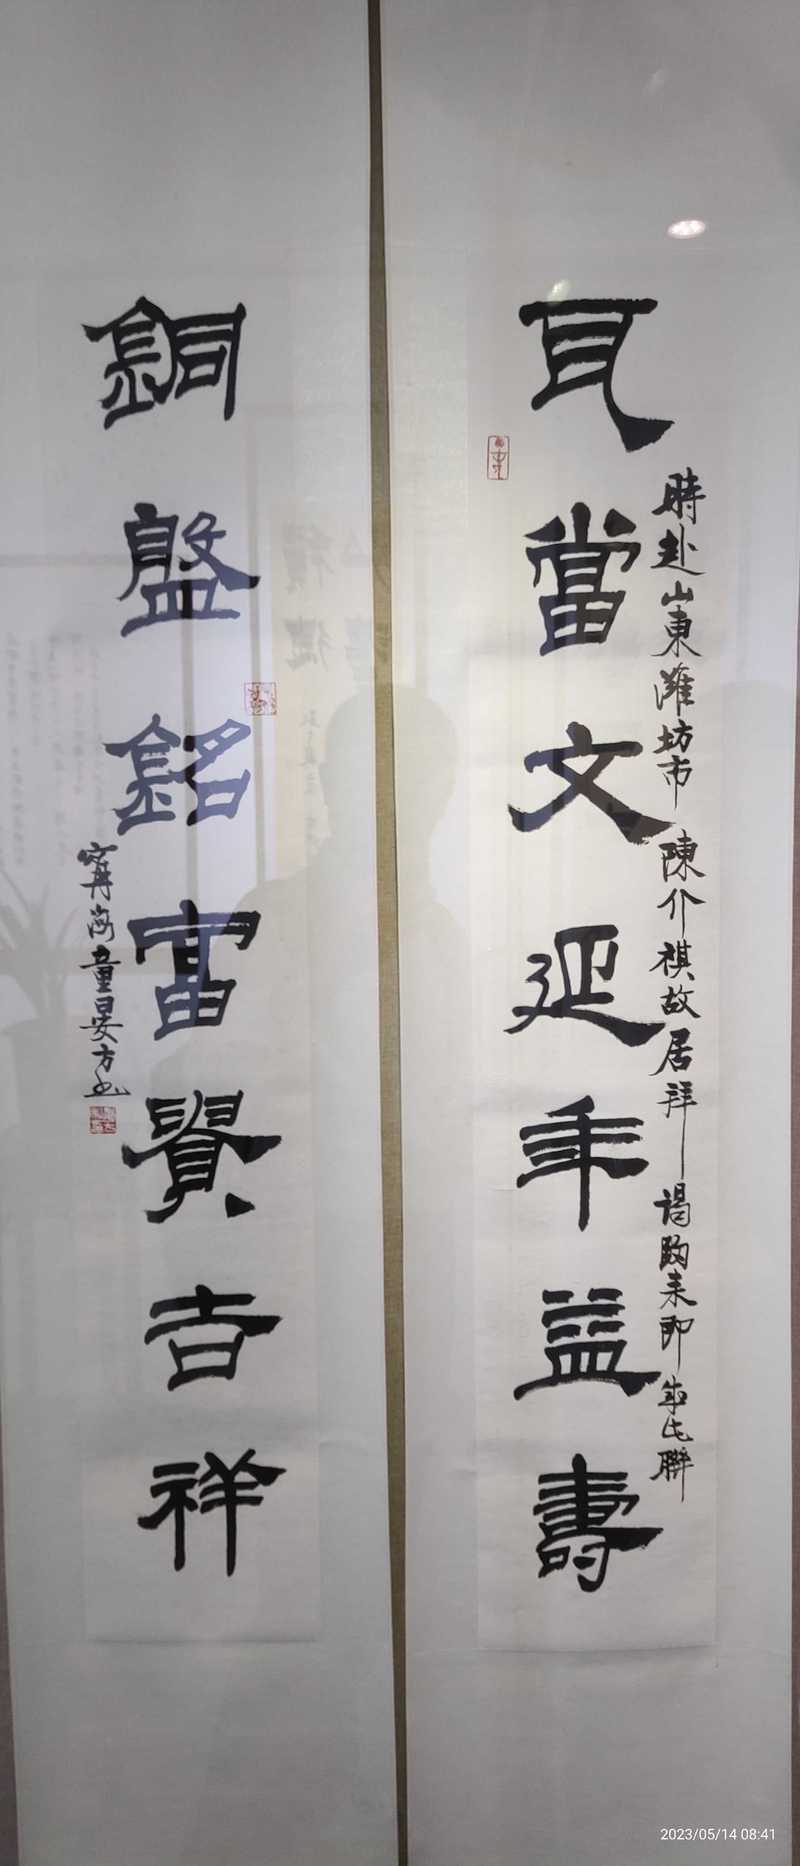 瓦當文延年益壽
時赴山東濰坊市陳介祺故居拜謁歸来即成此聯
銅盤銘富貴吉祥
甯海童晏方
2023/05/14 08:41